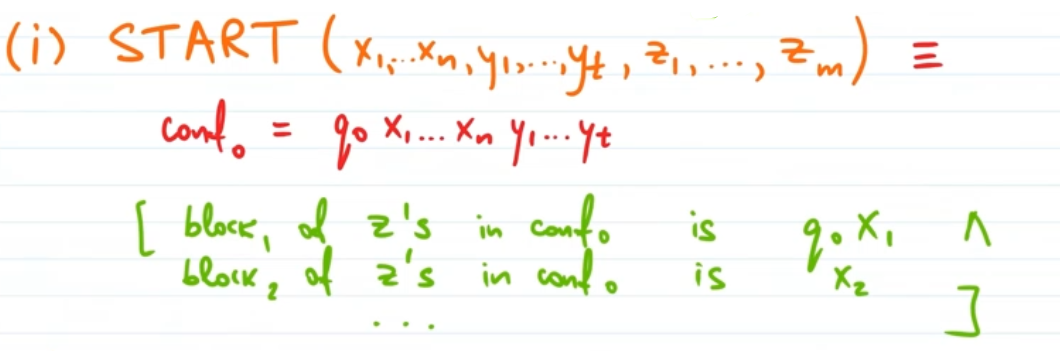 (i) START (x₁,...xₙ, y₁,...,yₜ, z₁, ..., zₘ) ≡
conf₀ = q₀ x₁... xₙ y₁...yₜ
[ block₁ of z's in conf₀ is q₀ x₁ ∧
block₂ of z's in conf₀ is x₂
... ]